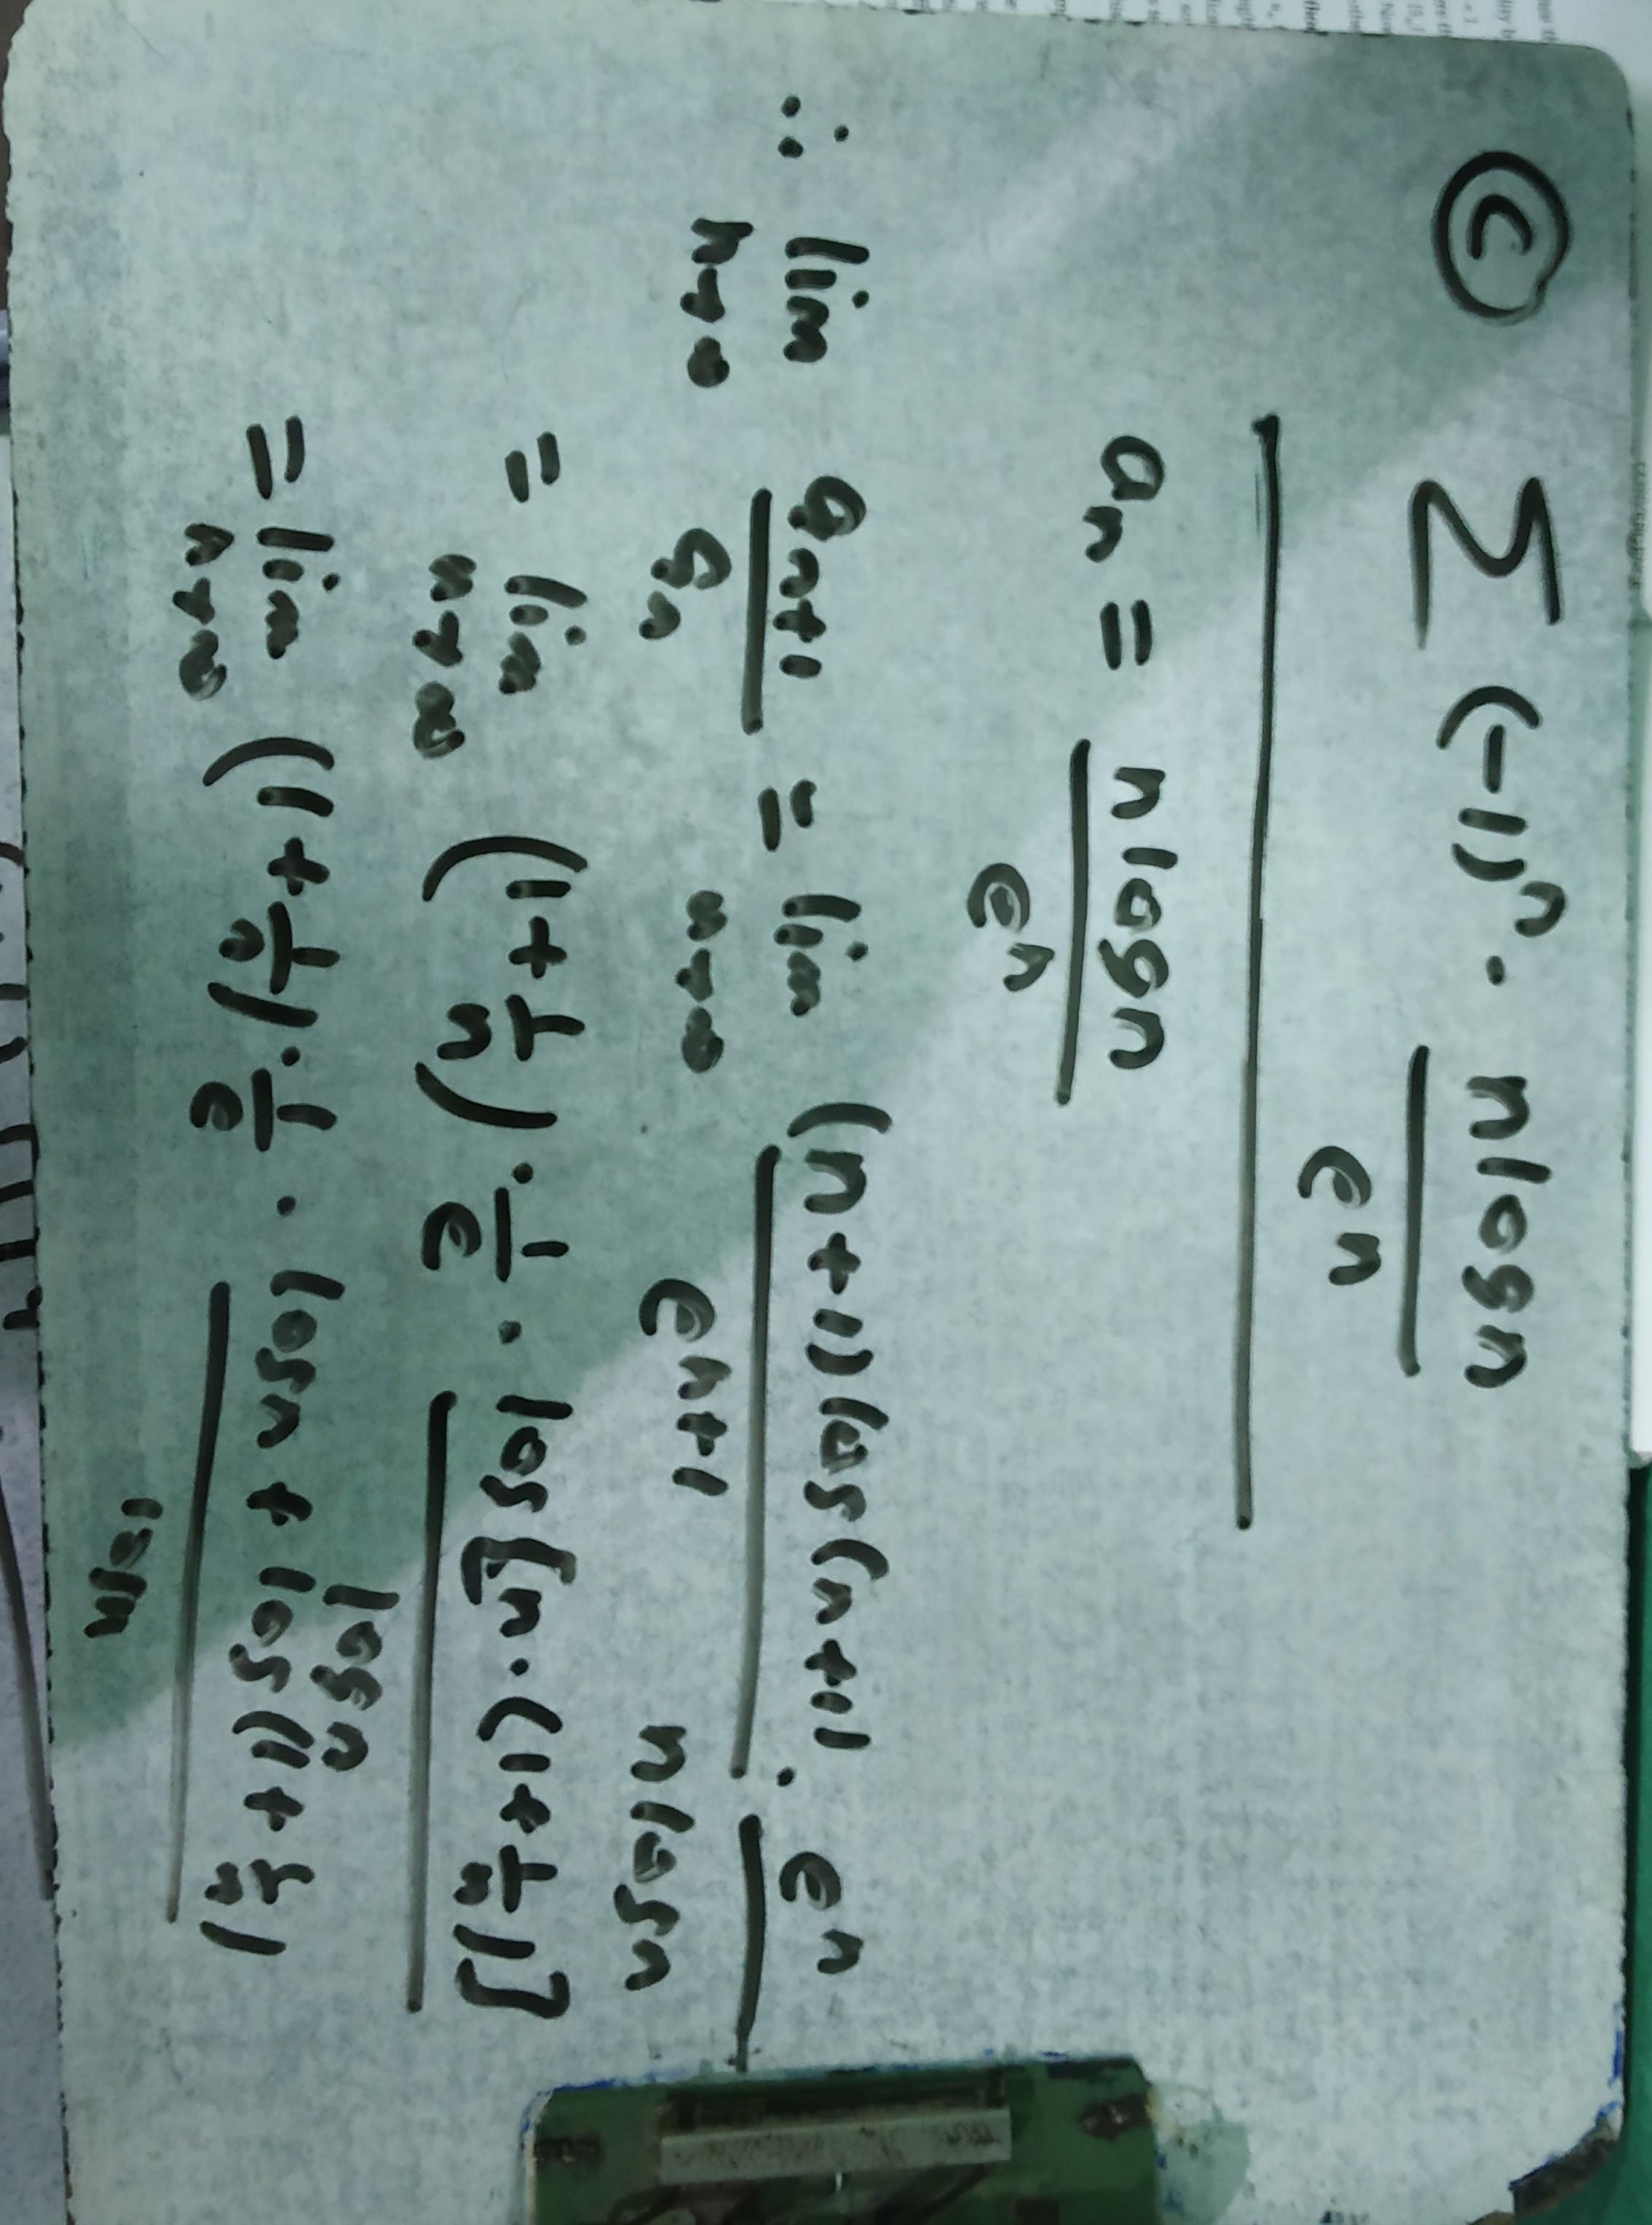 Ⓒ ∑ (-1)ⁿ · n log n / eⁿ
aₙ = n log n / eⁿ
∴ lim n→∞ aₙ₊₁ / aₙ = lim n→∞ (n+1) log (n+1) / eⁿ⁺¹ · eⁿ / n log n
= lim n→∞ (1/n + 1) · 1/e · log [n · (1 + 1/n)] / log n
= lim n→∞ (1 + 1/n) · 1/e · log n + log (1 + 1/n)